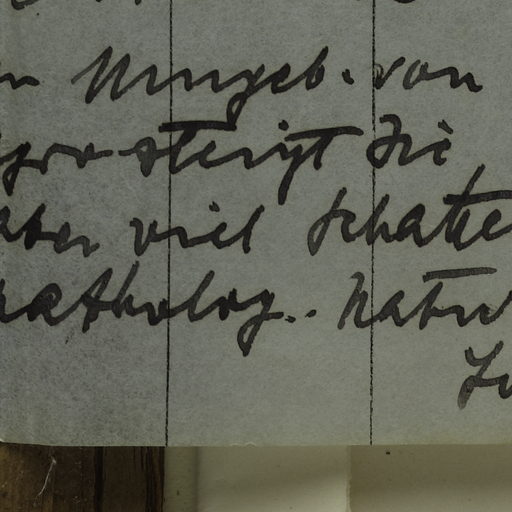 n Umgeb. von
steigt die
aber viel Schatte
patholog. Natur